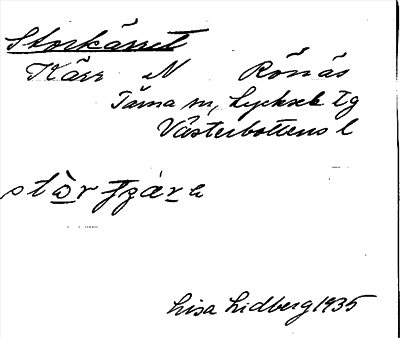 Storkärret
Kärr N Rönäs
Tärna sn, Lycksele tg
Västerbottens l
stòr
Lisa Lidberg 1935